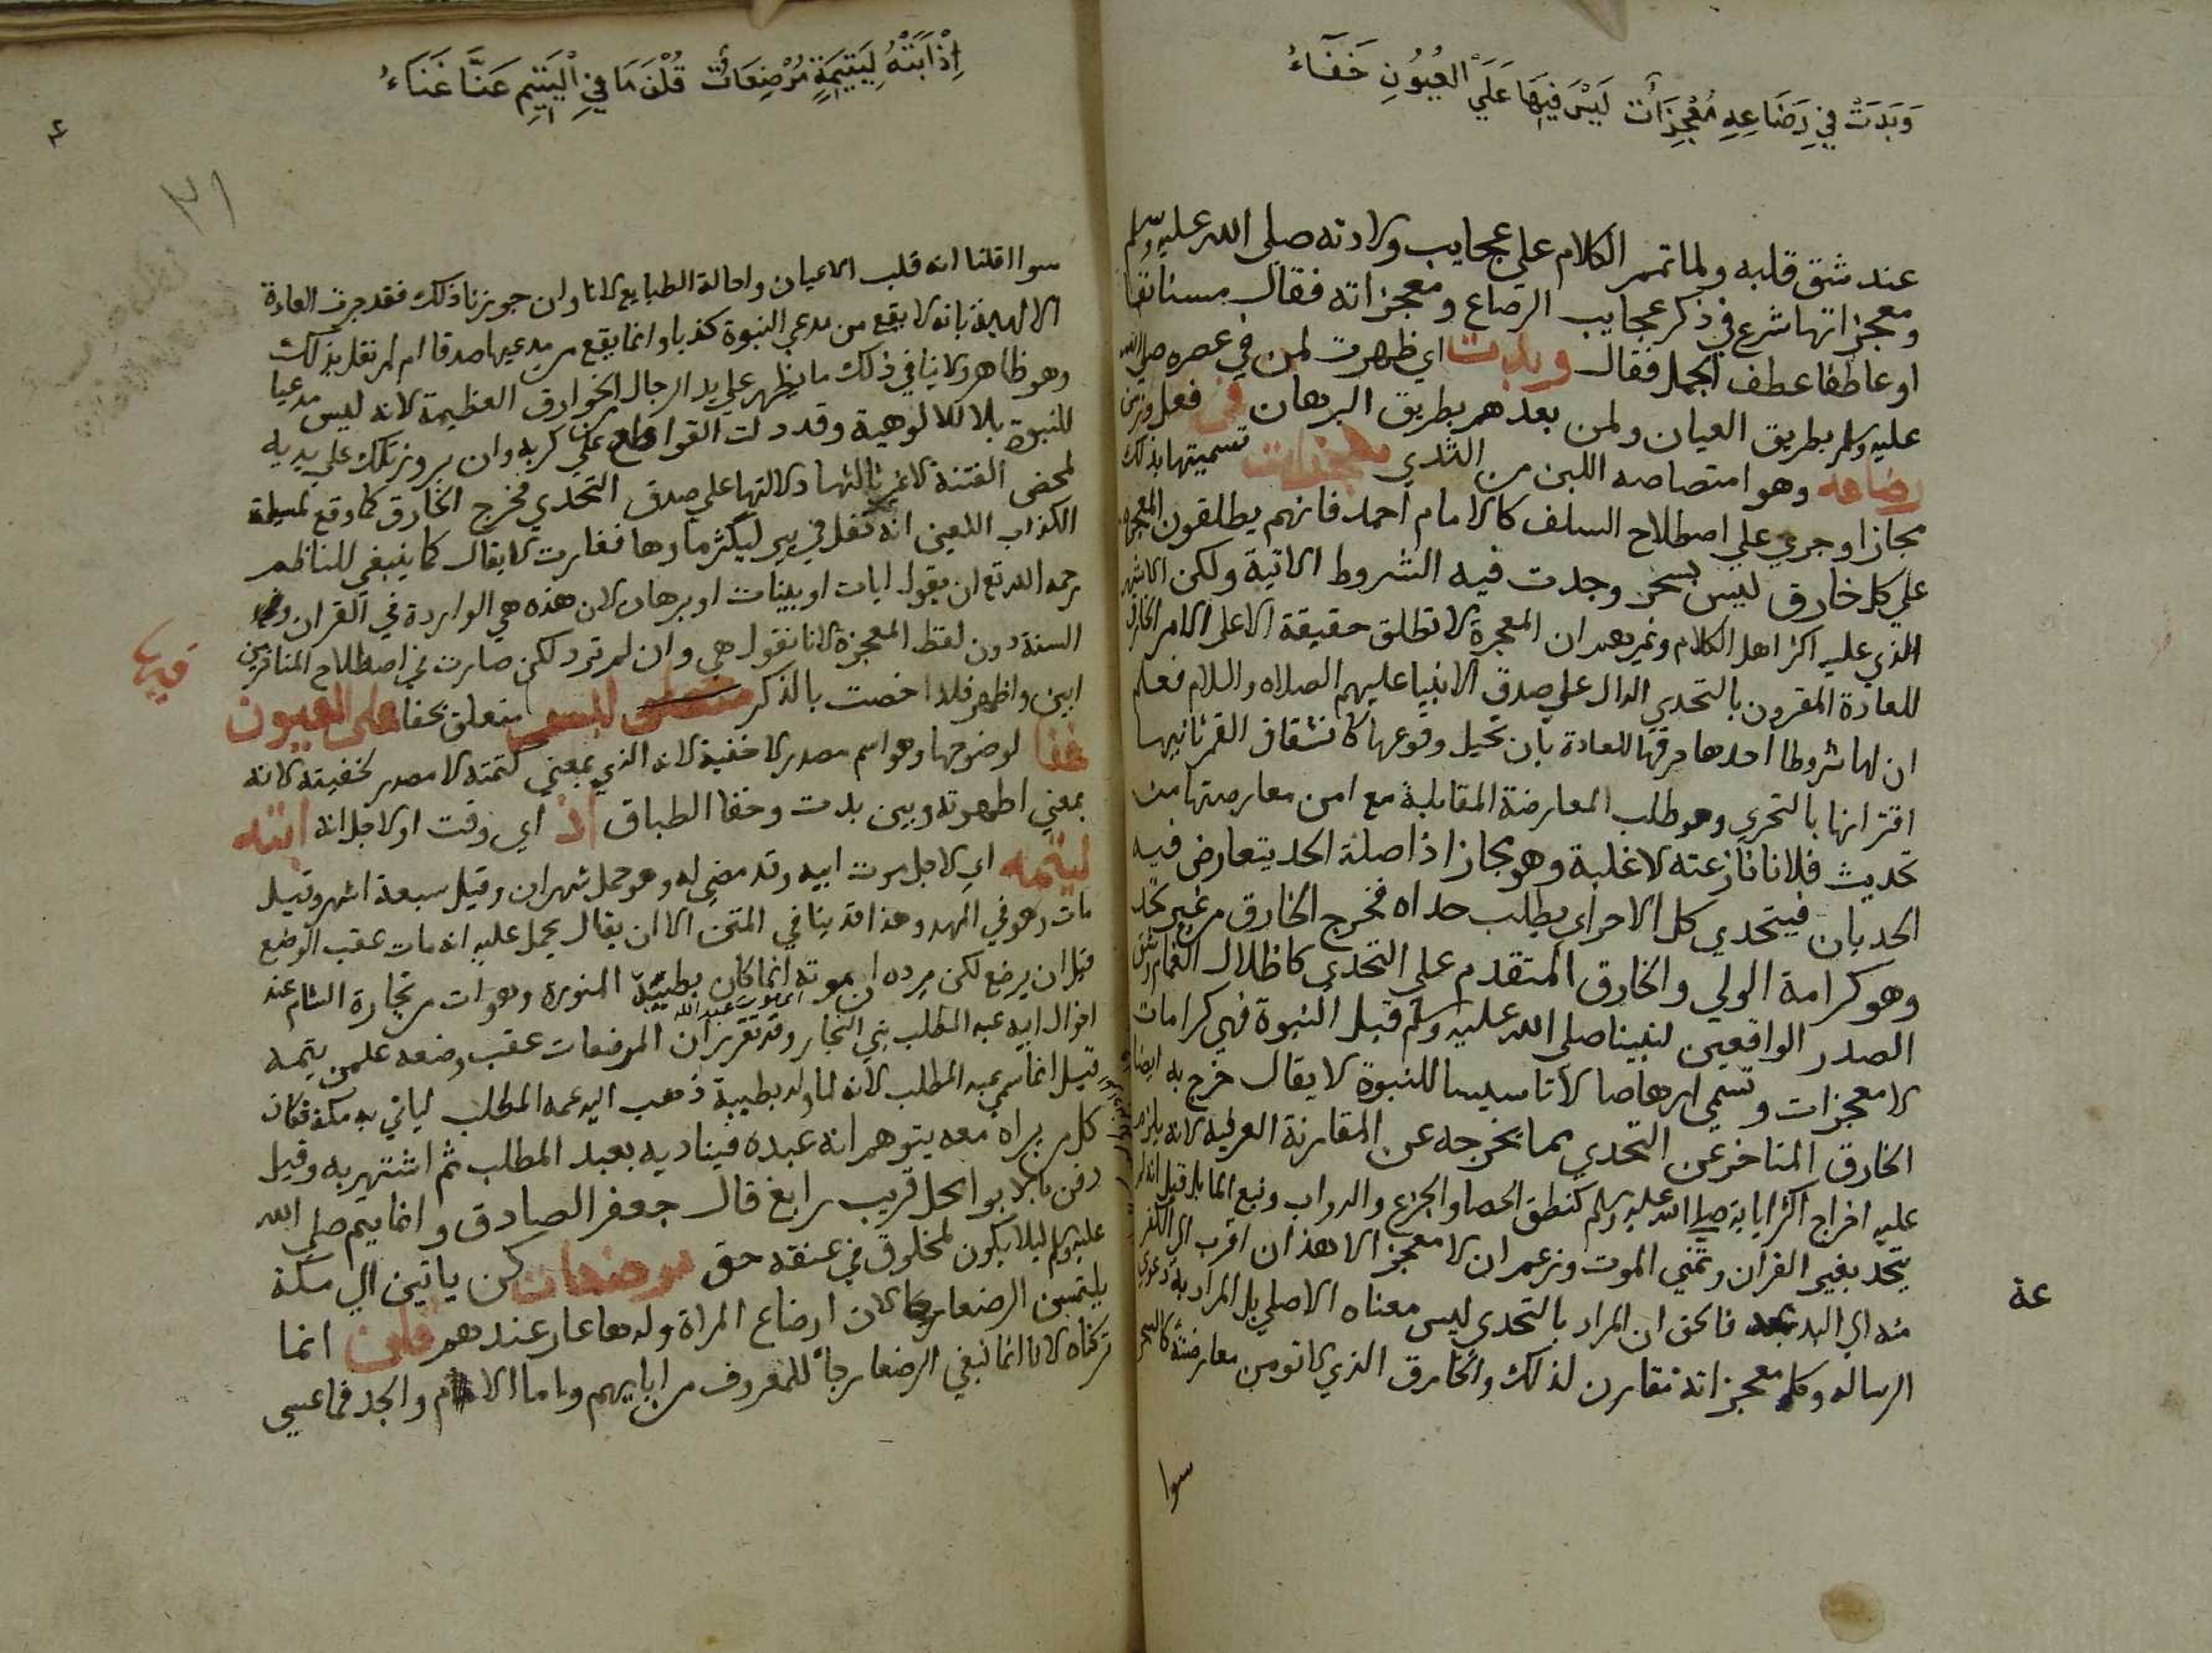 وَبَدَتْ فِي رَضَاعِهِ مُعْجِزَاتٌ لَيْسَ فِيهَا عَلَى الْعُيُونِ خَفَآءُ
عند شق قلبه ولما تمم الكلام علي عجايب ولادته صلي الله عليه وسلم
ومعجزاتها شرع في ذكر عجايب الرضاع ومعجزاته فقال مستانفا
او عاطفا عطف الجمل فقال وبدت اي ظهرت لمن في عصره صلي الله
عليه وسلم بطريق العيان ولمن بعدهم بطريق البرهان في فعل وزمن
رضاعه وهو امتصاصه اللبن من الثدي معجزات تسميتها بذلك
مجازا وجري علي اصطلاح السلف كالامام احمد فانهم يطلقون المعجزة
علي كل خارق ليس بسحر وجدت فيه الشروط الاتية ولكن الاشهر
الذي عليه اكثر اهل الكلام وغيرهم ان المعجزة لا تطلق حقيقة الا علي الامر الخارق
للعادة المقرون بالتحدي الدال علي صدق الانبيا عليهم الصلاه والسلام فعلم
ان لها شروطا احدها خرقها للعادة بان تحيل وقوعها كانشقاق القمر ثانيها
اقترانها بالتحدي وهو طلب المعارضة المقابلة مع امن معارضتها من
تحديث فلانا نازعته لاغلبة وهو مجاز اذ اصلة الحد يتعارض فيه
الحديان فيتحدي كل الاخر اي يطلب حداه فخرج الخارق من غير تحد
وهو كرامة الولي والخارق المتقدم علي التحدي كاظلال الغمام وشق
الصدر الواقعين لنبينا صلي الله عليه وسلم قبل النبوة فهي كرامات
لا معجزات وتسمي ارهاصا لا تاسيسا للنبوة لا يقال خرج به ايضا
الخارق المتاخر عن التحدي بما يخرجه عن المقارنة العرفية لانه يلزم
عليه اخراج اكثر اياته صلي الله عليه وسلم كنطق الحصا والجزع والدواب ونبع الما بل قيل انه لم
يتحد بغير القرآن وتمني الموت وزعم ان لا معجز الا هذان اقرب الي الكفر
منه الي البدعة فالحق ان المراد بالتحدي ليس معناه الاصلي بل المراد به دعوي
الرساله وكل معجزاته تقارن لذلك والخارق الذي لا تومن معارضتة كالسحر
سوا
عة
اِذْ اَبَتْهُ لِيُتْمِهِ مُرْضِعَاتٌ قُلْنَ مَا فِي الْيَتِيمِ عَنَّا غَنَاءُ
٣١
سوا اقلنا انه قلب الاعيان واحالة الطبايع لانا وان جوزنا ذلك فقد جرت العادة
الالهية بانه لا يقع من مدعي النبوة كذبا وانما يقع من مدعيها صدقا ام لم نقل بذلك
وهو ظاهر ولا ينافي ذلك ما يظهر علي يد الدجال من الخوارق العظيمة لانه ليس مدعيا
للنبوة بل للالوهية وقد دلت القواطع علي كذبه وان بروز تلك علي يديه
لمحض الفتنة لا غير ثالثها دلالتها علي صدق التحدي فخرج الخارق كما وقع لمسيلمة
الكذاب اللعين انه تفل في بير ليكثر ماوها فغارت لا يقال كما ينبغي للناظم
رحمه الله تع ان يقول ايات او بينات او برهان لان هذه هي الواردة في القران وفي
السنة دون لفظ المعجزة لانا نقول هي وان لم ترد لكن صارت في اصطلاح المتاخرين
ابين واظهر فلذا خصت بالذكر متعلق بخفا علي العيون
فيها
خفا لوضوحها وهو اسم مصدر لا خفية لانه الذي بمعني كتمته لا مصدر لخفيته لانه
بمعني اظهرته وبين بدت وخفا الطباق اذ اي وقت او لاجل انه ابته
ليتمه اي لاجل موت ابيه وقد مضي له وهو حمل شهران وقيل سبعة اشهر وقيل
مات وهو في المهد وهذا قد ينافي المتن الا ان يقال يحمل عليه انه مات عقب الوضع
قبل ان يرضع لكن يرده ان موته انما كان بطيبة المنورة وهو آت من تجارة الشام عند
اخوال ابيه عبد المطلب بني النجار وقد تقرر ان المرضعات عقب وضعه علمن يتمه
قيل انما سمي عبد المطلب لانه لما ولد بطيبة ذهب اليه عمه المطلب لياتي به مكة فكان
كل من يراه معه يتوهم انه عبده فيناديه بعبد المطلب ثم اشتهر به وقيل
دفن بالابوا محل قريب رابغ قال جعفر الصادق وانما يتم صلي الله
عليه وسلم ليلا يكون لمخلوق في عنقه حق مرضعات كن ياتين الي مكة
يلتمسن الرضعا لان ارضاع المراة ولدها عار عندهم قلن انما
تركناه لانا انما نبغي الرضعا رجاً للمعروف من ابايهم واما الام والجد فما عسي